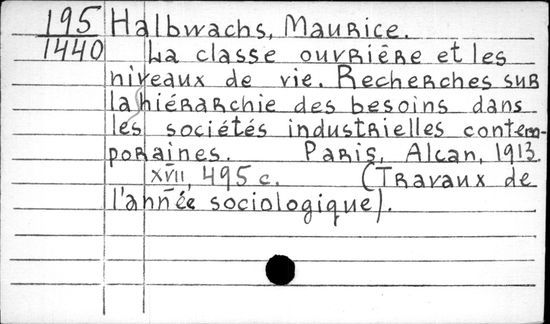 195 Halbwachs, Maurice.
1440 La classe ouvrière et les
niveaux de vie. Recherches sur
la hiérarchie des besoins dans
les sociétés industrielles contem-
poraines. Paris, Alcan, 1913.
XVII, 495 c. (Travaux de
l'année sociologique).